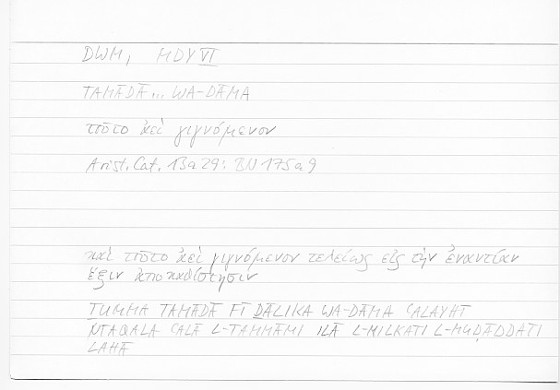 DWM, MDY VI
TAMĀDĀ... WA-DĀMA
τοῦτο ἀεὶ γιγνόμενον
Arist. Cat. 13a29: BN 175a9
καὶ τοῦτο ἀεὶ γιγνόμενον τελείως εἰς τὴν ἐναντίαν
ἕξιν ἀποκαθίστησιν
TUMMA TAMĀDĀ FĪ DĀLIKA WA-DĀMA CALAYHI
NTAQALA CALĀ L-TAMMĀMI ILĀ L-MILKATI L-MUḌĀDDATI
LAHĀ